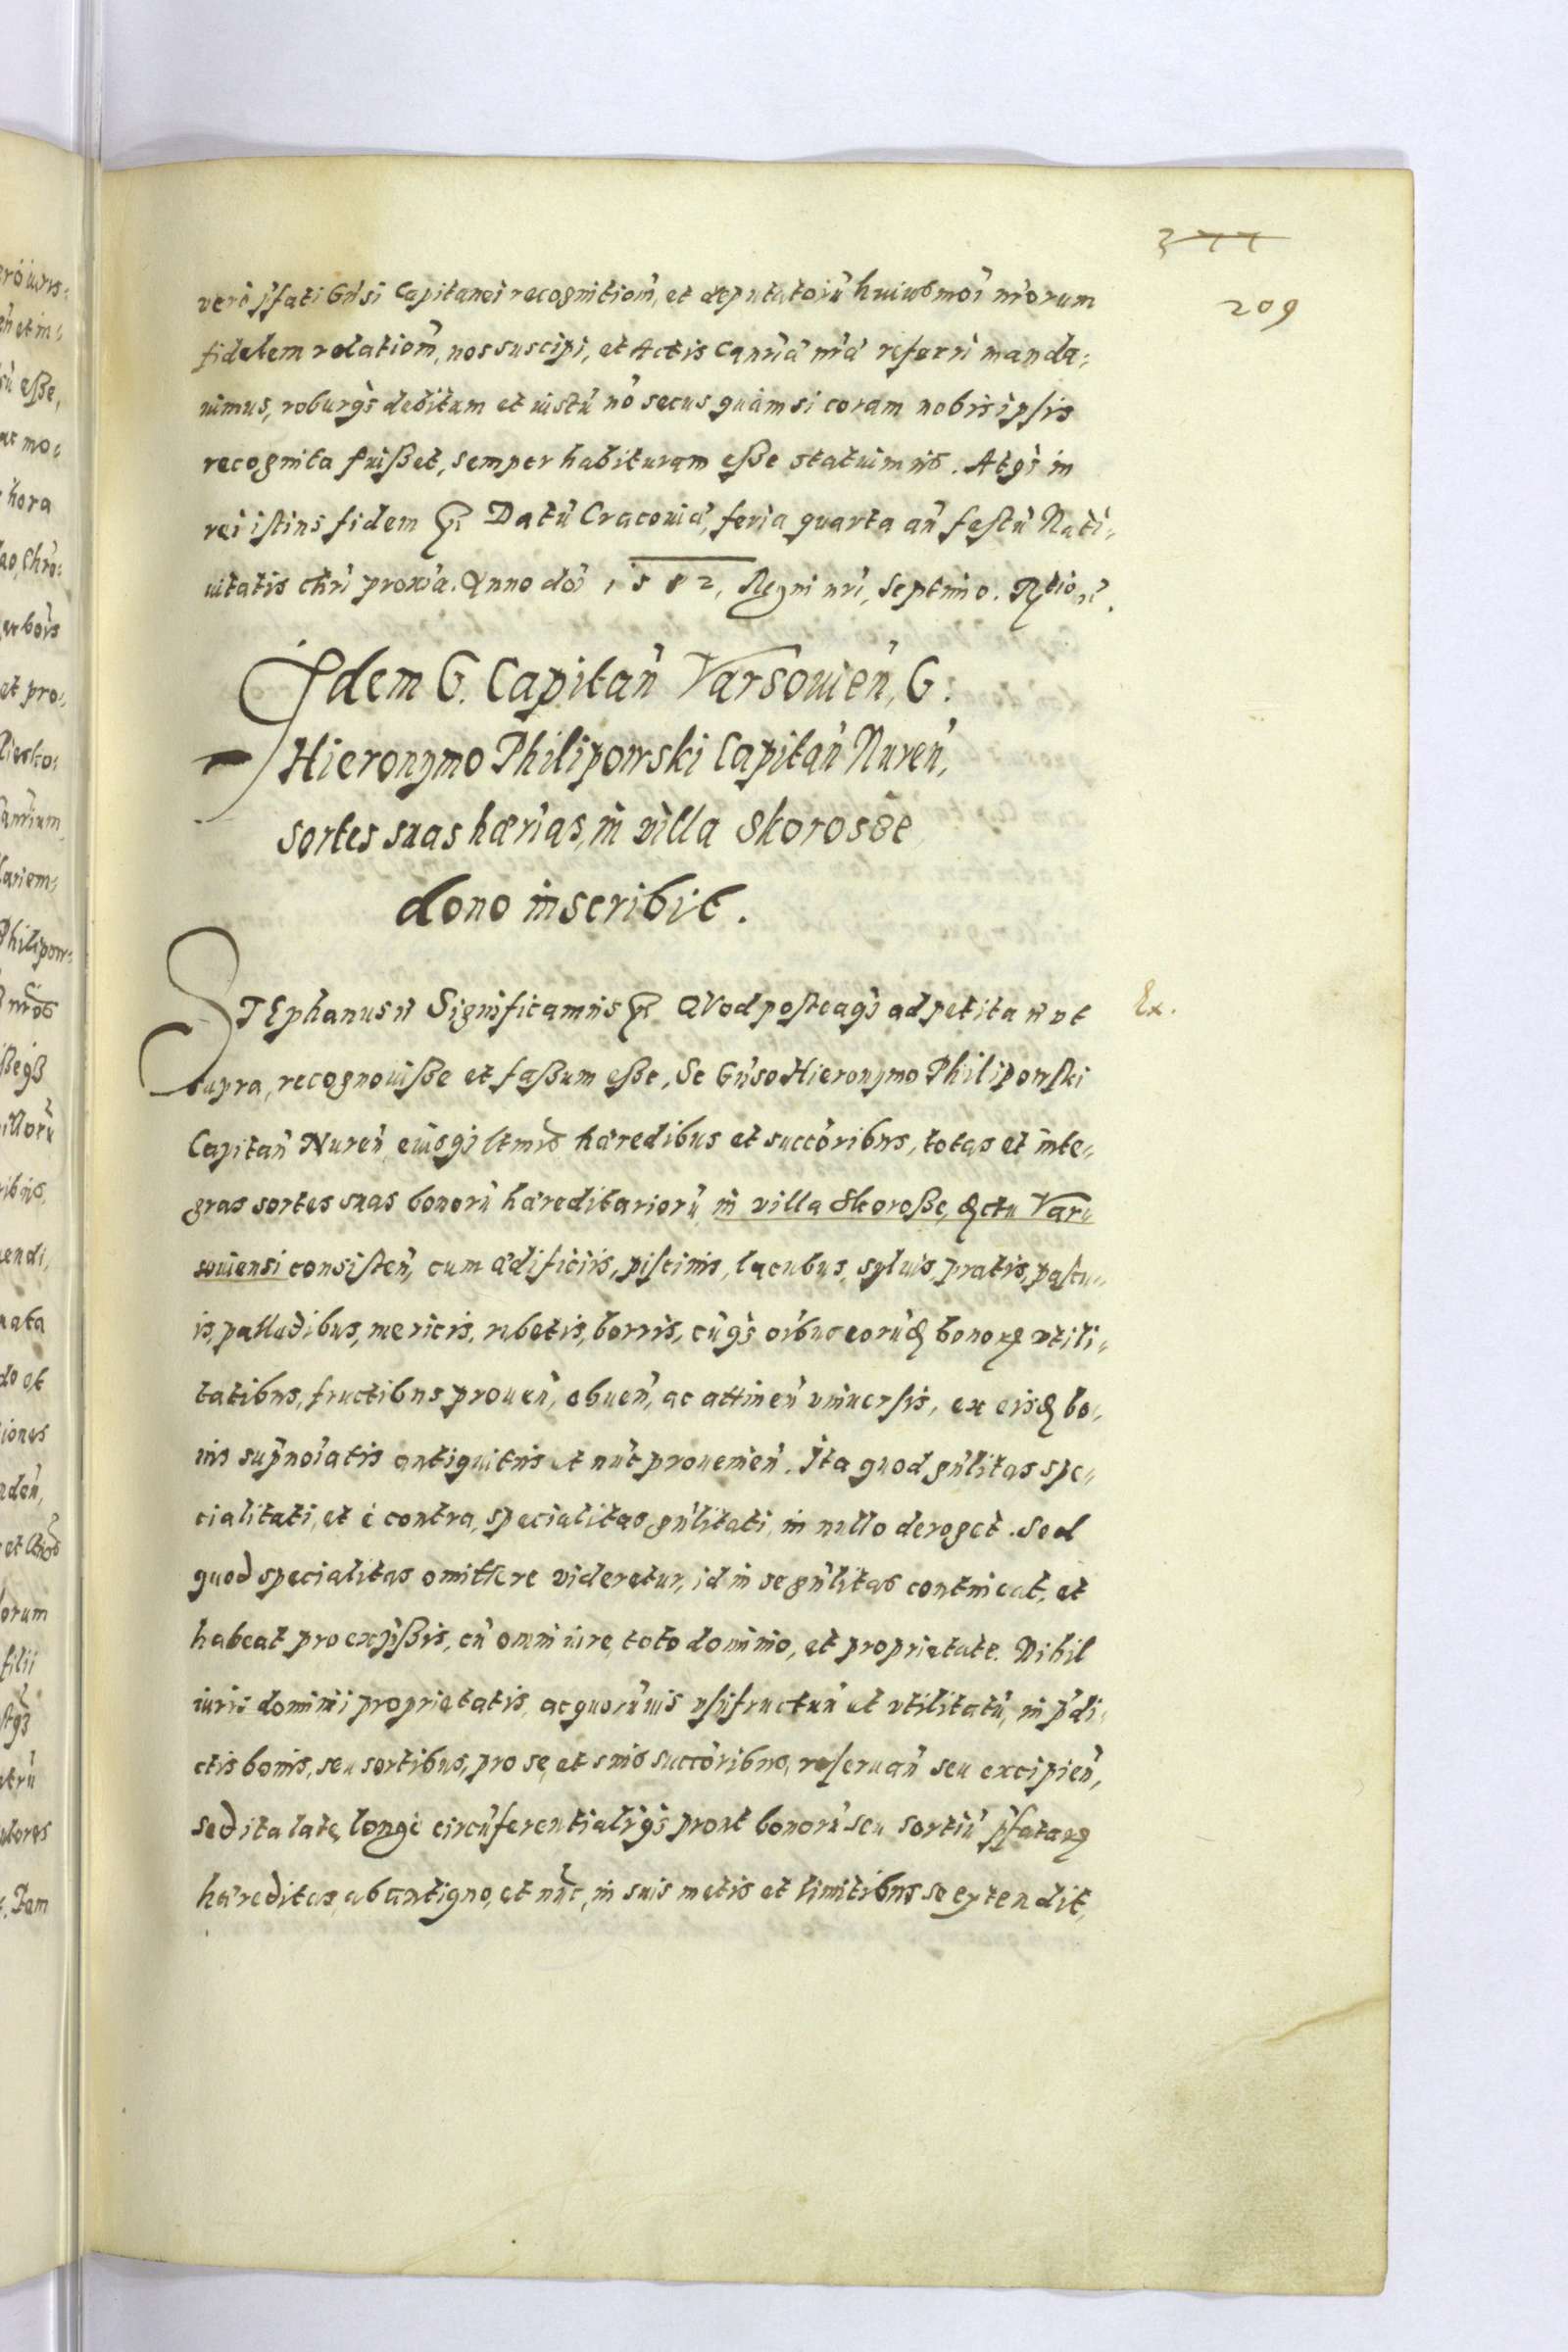 377
209
verò pfati Gnsi Capitanei recognitiom̃, et deputatorũ huiusmoĩ nrorum
fidelem relatiom̃, nos suscipi, et Actis Canriæ nrae referri manda„
uimus, roburq; debitum et iustũ nõ secus quàm si coram nobis ipsis
recognita fuißet, semper habituram eße statuimus. Atq; in
rei istius fidem &c. Datũ Cracouiæ, feria quarta añ festũ Nati„
uitatis Chri proxia. Anno doi 1582, Regni nri, Septimo. Rtio
Idem G. Capitañ Varsouieñ, G.
Hieronymo Philipowski Capitañ Nureñ,
sortes suas hærias, in villa Skorosße
dono inscribit.
STEphanus &c Significamus &c. QVod posteaq; ad petita &c vt
Ex.
supra, recognouiße et faßum eße, Se Gnso Hieronymo Philipowski
Capitañ Nureñ eiusq; ltmis hæredibus et succoribus, totas et inte„
gras sortes suas bonorũ hæreditariorũ in villa Skoroße, Dctu Var„
souiensi consisteñ, cum ædificiis, piscinis, lacubus, syluis, pratis, pascu„
is, palludibus, mericis, rubetis, borris, cũq; oibus eorũd bonorq vtili„
tatibus, fructibus proueñ, obueñ, ac attineñ vniuersis, ex eisd bo„
nis supnoiatis antiquitus et nũc prouenieñ. Ita quod gñlitas spe„
cialitati, et è contra, specialitas gñlitati, in nullo deroget. Sed
quod specialitas omittere videretur, id in se gñlitas contineat, et
habeat pro expßis, cũ omni iure, toto dominio, et proprietate. Nihil
iuris dominii proprietatis, ac quorũuis vsufructuũ et vtilitatũ, in pdi„
ctis bonis, seu sortibus, pro se, et suis succoribus, reseruañ seu excipieñ,
sed ita late, longè circũferentialiq; prout bonorũ seu sortiũ pfatarq
hæreditas, ab antiquo, et nũc, in suis metis et limitibus se extendit,